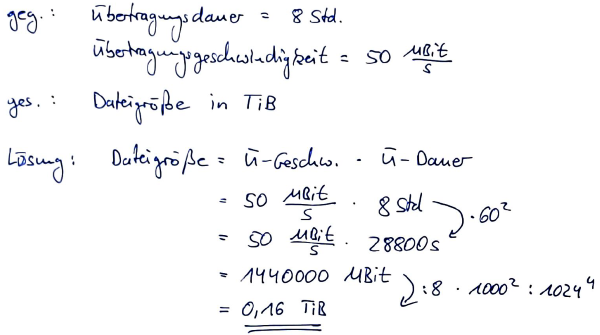 geg.: Übertragungsdauer = 8 Std.
Übertragungsgeschwindigkeit = 50 MBit/s
ges.: Dateigröße in TiB
Lösung: Dateigröße = Ü-Geschw. · Ü-Dauer
= 50 MBit/s · 8 Std
·60²
= 50 MBit/s · 28800s
= 1440000 MBit
:8 · 1000² : 1024⁴
= 0,16 TiB